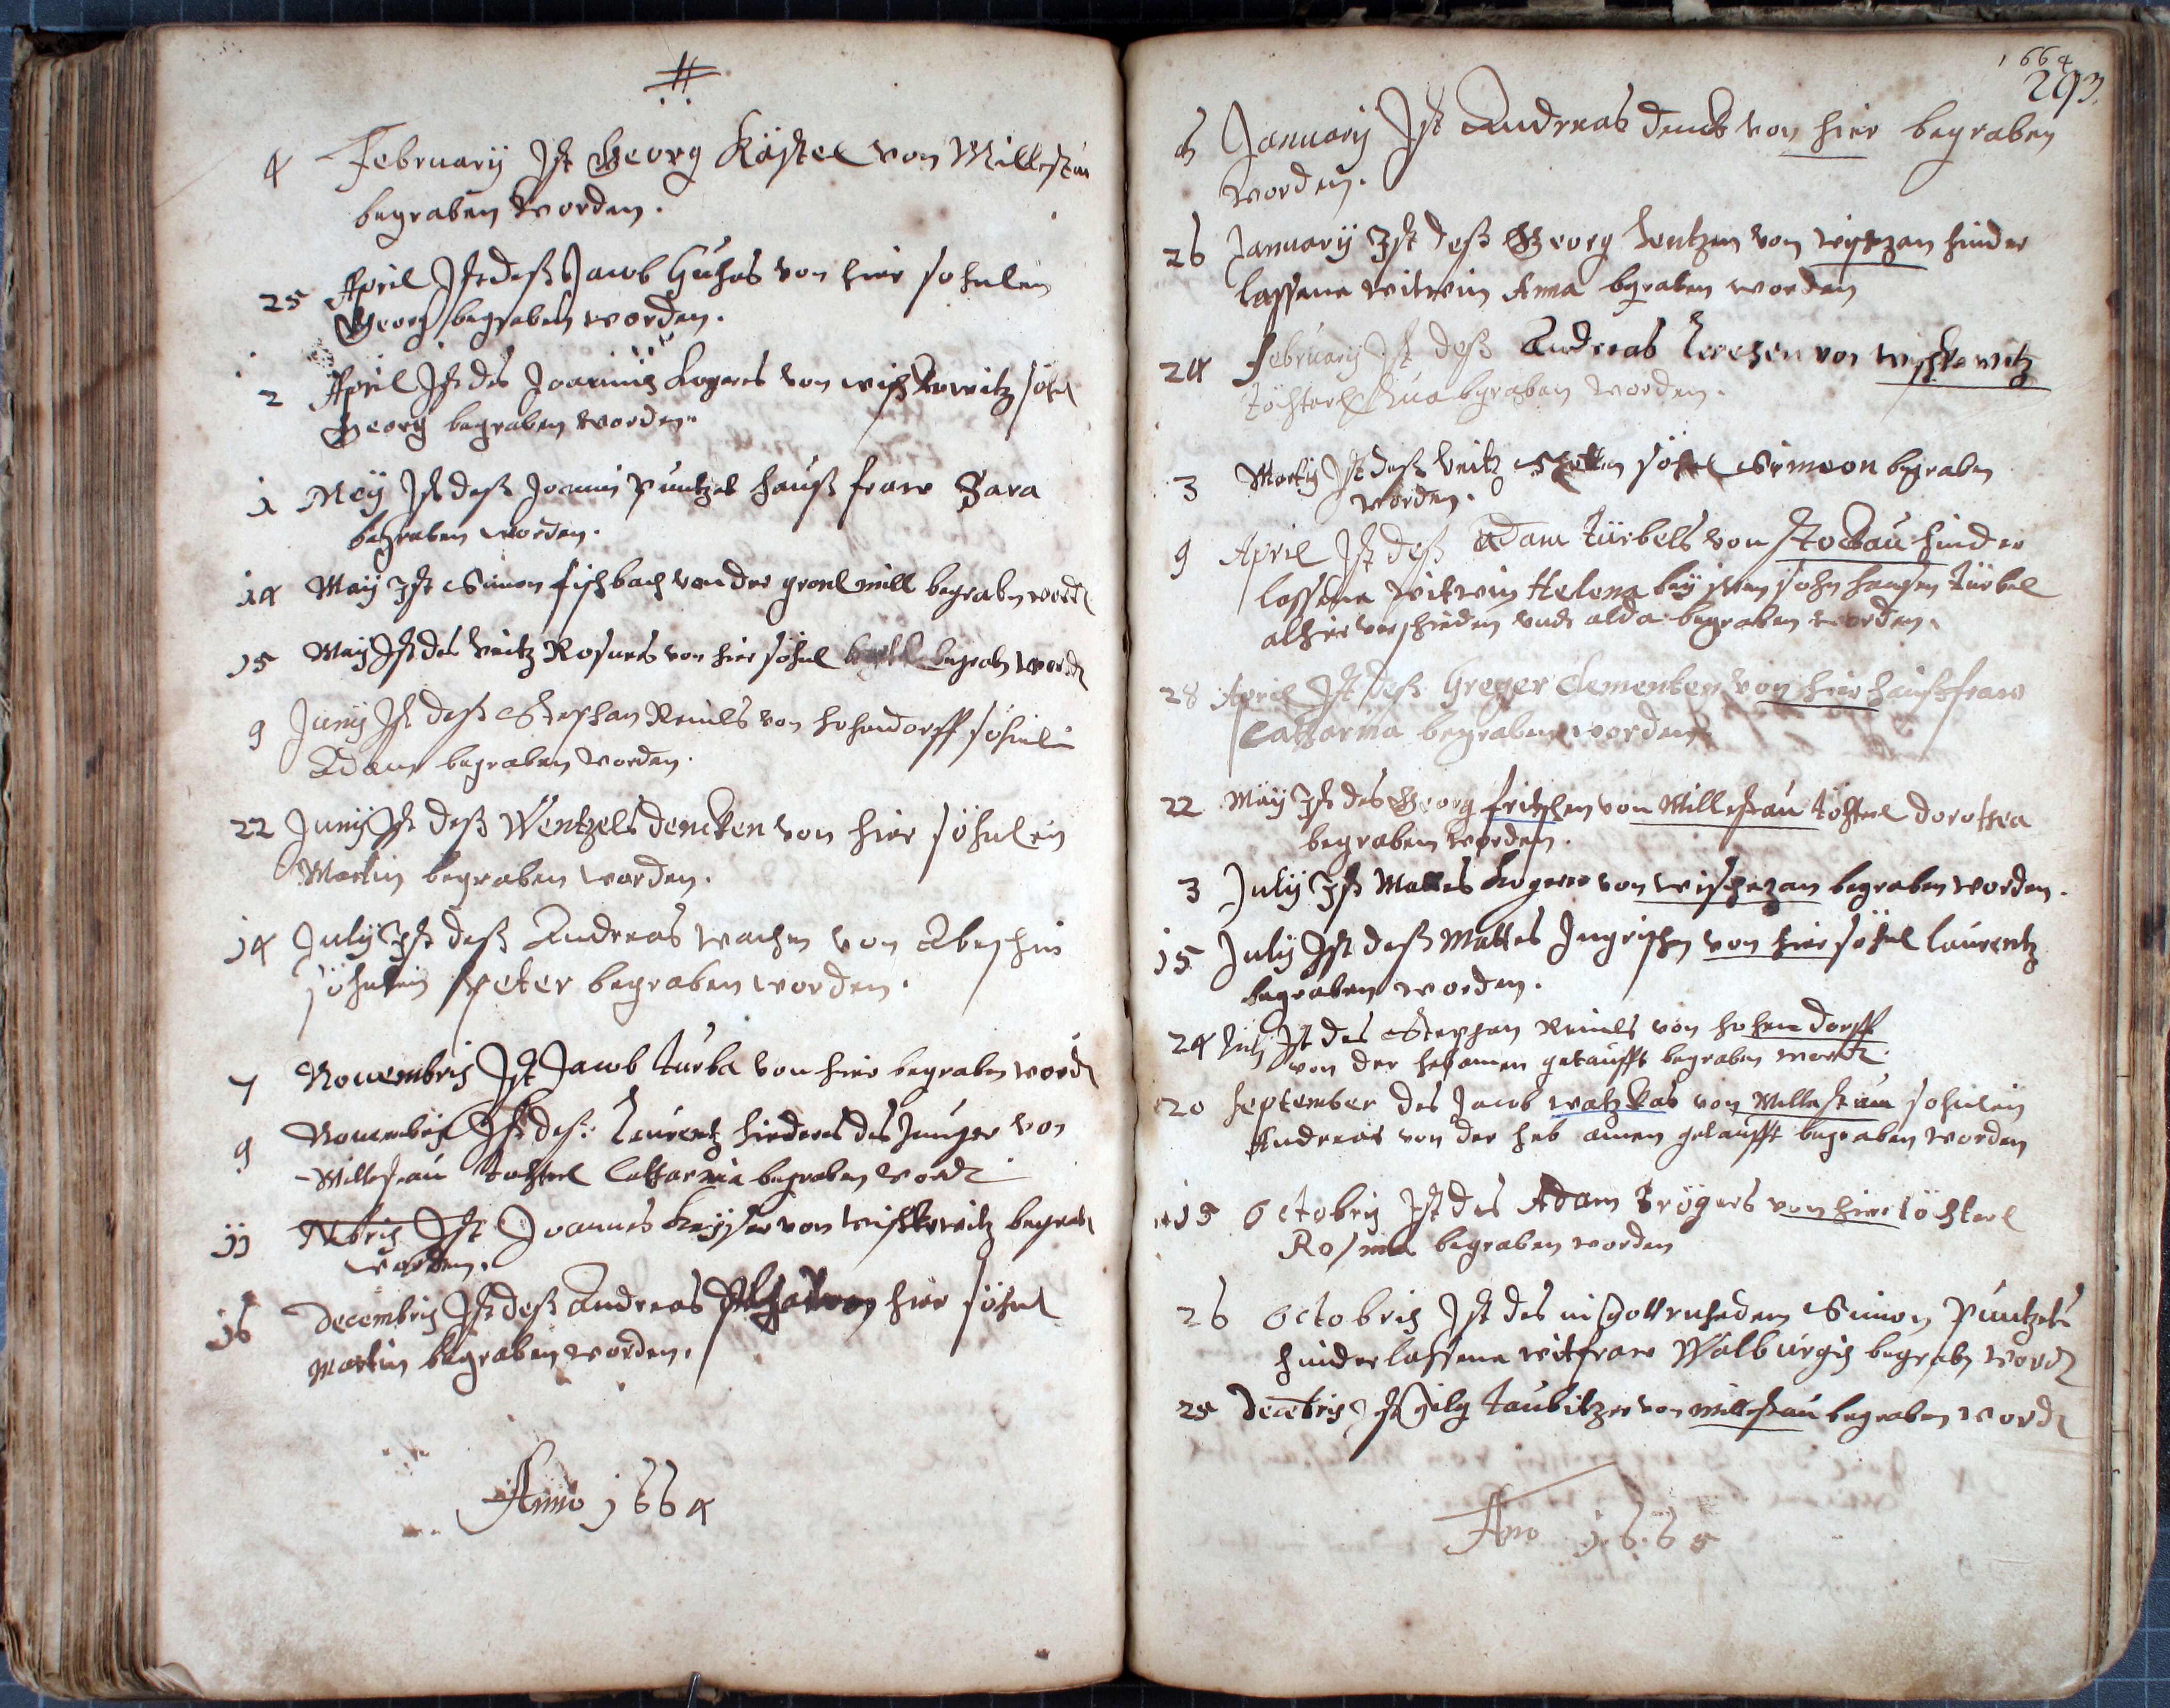 4 February Ist Georg Kästel von Millestau
begraben worden.
25 April Ist deß Jacob Huhes von hier söhnlein
Georg begraben worden.
2 April Ist des Joannis Kogeres von wißkowitz söhnl
Georg begraben worden.
1 Meÿ Ist deß Joannis Puntzet hauß fraw Sara
begraben worden.
14 Maÿ Ist Simon fischbach von der mill begraben word
15 Maÿ Ist des Veitz Rosners von hier söhnl begrabn word
9 Junÿ Ist deß Stephan Reinels von hohendorff söhnlein
Adam begraben worden.
22 Junÿ Ist deß Wentzels dencken von hier söhnlein
Martin begraben worden.
14 Julÿ Ist deß Andreas wachen von Abeschin
söhnlein Peter begraben worden.
7 Nouembris Ist Jacob Turba von hier begraben word
9 Nouembris Ist deß Laurentz hirderes des Junger von
Millestau töchterl Cattarina begraben word
11 9bris Ist Joannes Keÿser von wißkowitz begrabn
worden.
16 Decembris Ist deß Andreas von hier söhnl
Martin begraben worden.
Anno 1664
1664
293
6 Januarÿ Ist Andreas denck von hier begraben
worden.
26 Januarÿ Ist deß Georg Lentzen von wischzan hinder
lassene witwin Anna begraben worden
24 Februarÿ Ist deß Andreas Lerchen von wischkowitz
töchterl Eua begraben worden.
3 Martÿ Ist deß Veitz söhnl Simeon begraben
worden.
9 April Ist deß Adam Türbels von Stockau hinder
lassene witwin Helena beÿ ihren sohn hansen Türbel
alhier verschieden vnd alda begraben worden.
28 April Ist deß Greger Clementen von hier haußfraw
Cattarina begraben worden
22 Maÿ Ist des Georg fritschen von Millestau töchterl dorothea
begraben worden.
3 Julÿ Ist Mattes Kogerer von wischezan begraben worden.
15 Julÿ Ist deß Mattes Ingrischen von hier söhnl Laurentz
begraben worden.
24 Julÿ Ist des Stephan Reinels von hohendorff
von der hebamen getaufft begraben word
20 September des Jacob watzkas von Millestau söhnlein
Andreas von der heb amen getaufft begraben worden
15 Octobris Ist des Adam Trögers von hier töchterl
Rosina begraben worden
26 Octobris Ist des in gott ruhedem Simon Puntzets
hinderlassene witfraw Walburgis begrabn word
25 Decebris Ist gilg Taubitzer von millestau begraben word
Ano 1665